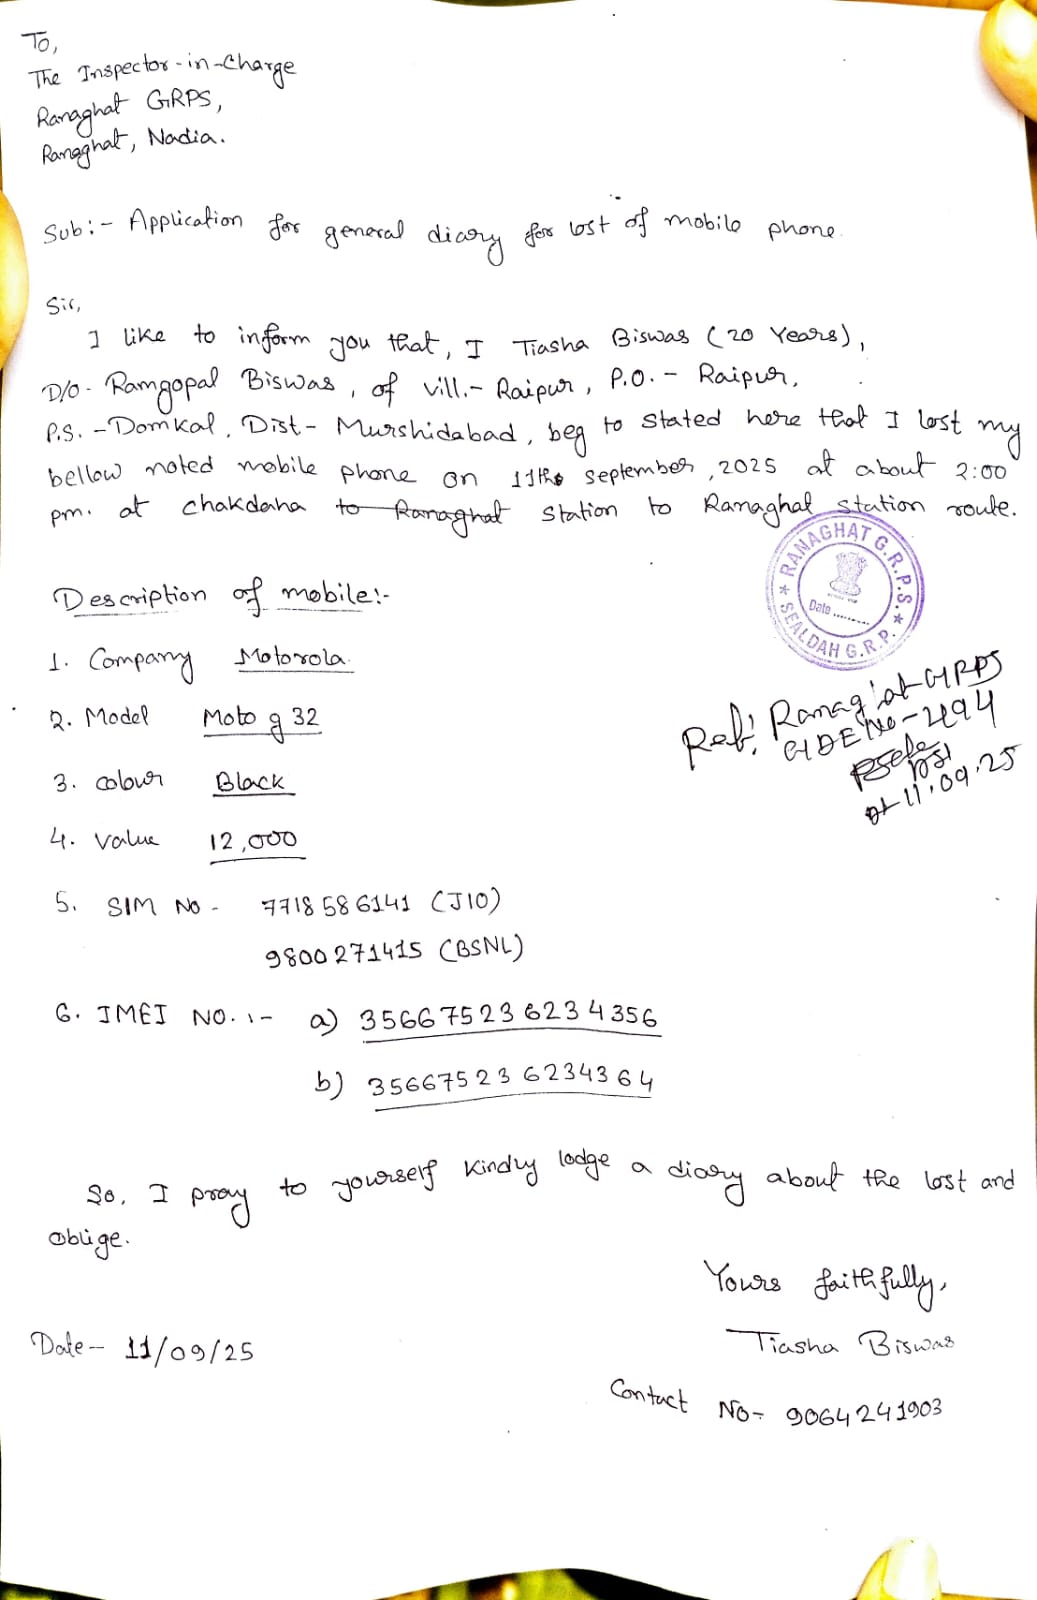 To,
The Inspector-in-Charge
Ranaghat GRPS,
Ranaghat, Nadia.
Sub:- Application for general diary for lost of mobile phone.
Sir,
I like to inform you that, I Tiasha Biswas (20 Years),
D/O- Ramgopal Biswas, of vill.- Raipur, P.O. - Raipur,
P.S. - Domkal, Dist- Murshidabad, beg to stated here that I lost my
bellow noted mobile phone on 11th september, 2025 at about 2:00
pm. at chakdaha to Ranaghat station to Ranaghat station route.
RANAGHAT G.R.P.S.
Date ..........
SEALDAH G.R.P.
Description of mobile:-
1. Company Motorola.
Ref: Ranaghat GRPS
2. Model Moto g 32
GDE No - 494
3. colour Black
dt 11.09.25
4. Value 12,000
5. SIM No - 7718586141 (JIO)
9800271415 (BSNL)
6. IMEI NO. :- a) 356675236234356
b) 356675236234364
So, I pray to yourself kindly lodge a diary about the lost and
oblige.
Yours faithfully,
Tiasha Biswas
Date- 11/09/25
Contact No- 9064241903